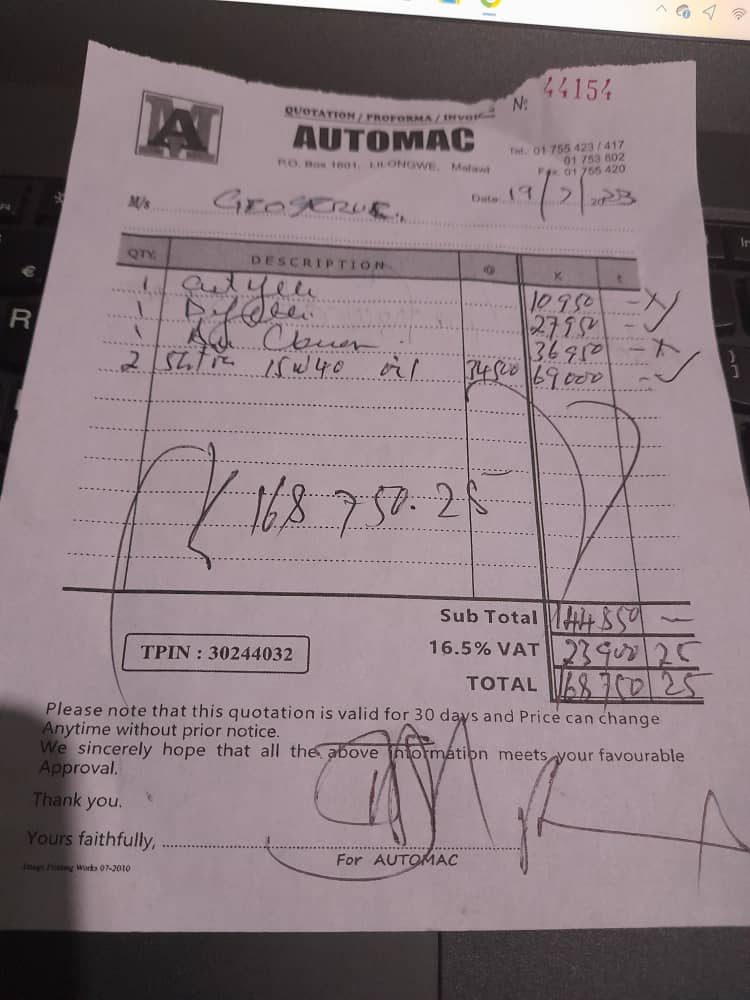 № 44154
QUOTATION / PROFORMA / INVOICE
AUTOMAC
P.O. Box 1601, LILONGWE, Malawi
Tel: 01 755 423 / 417
01 753 602
Fax 01 755 420
M/s
Date 19/7/2023
QTY. DESCRIPTION @ K t
1 10950 - X
1 27950 - ✓
1 36950 - X
2 15W40 oil 34500 69000 - ✓
168 750.25
Sub Total 144850 —
16.5% VAT 23900 25
TPIN : 30244032
TOTAL 168750 25
Please note that this quotation is valid for 30 days and Price can change
Anytime without prior notice.
We sincerely hope that all the above information meets your favourable
Approval.
Thank you.
Yours faithfully,
For AUTOMAC
Image Printing Works 07-2010